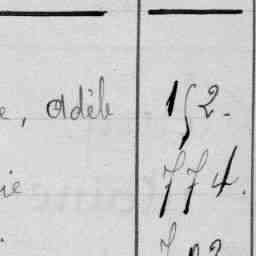 e, Adèle 152.
ie 774.